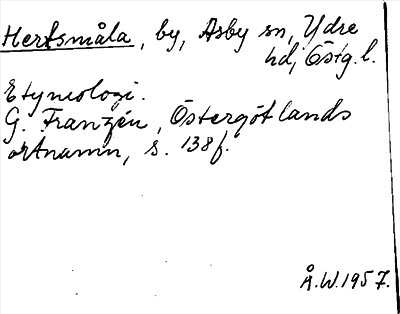 Hertsmåla, by, Asby sn, Ydre
hd, Östg.l.
Etymologi.
G. Franzén, Östergötlands
ortnamn, s. 138f.
Å.W.1957.